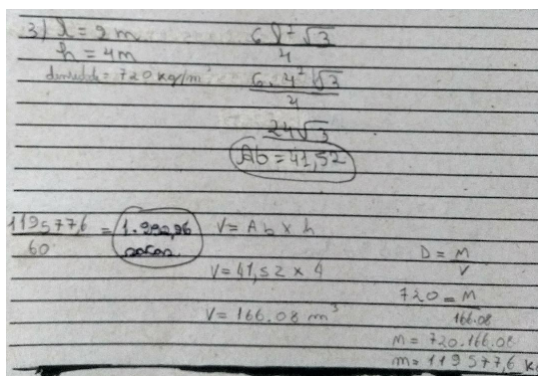 3) l = 2 m
h = 4m
densidade = 720 kg/m³
6 l² √3
4
6 . 4² √3
4
24√3
Ab = 41,52
119577,6 = 1.992,96
60 sacas
V = Ab x h
V = 41,52 x 4
V = 166.08 m³
D = M
V
720 = M
166.08
M = 720.166.08
m = 119577,6 kg